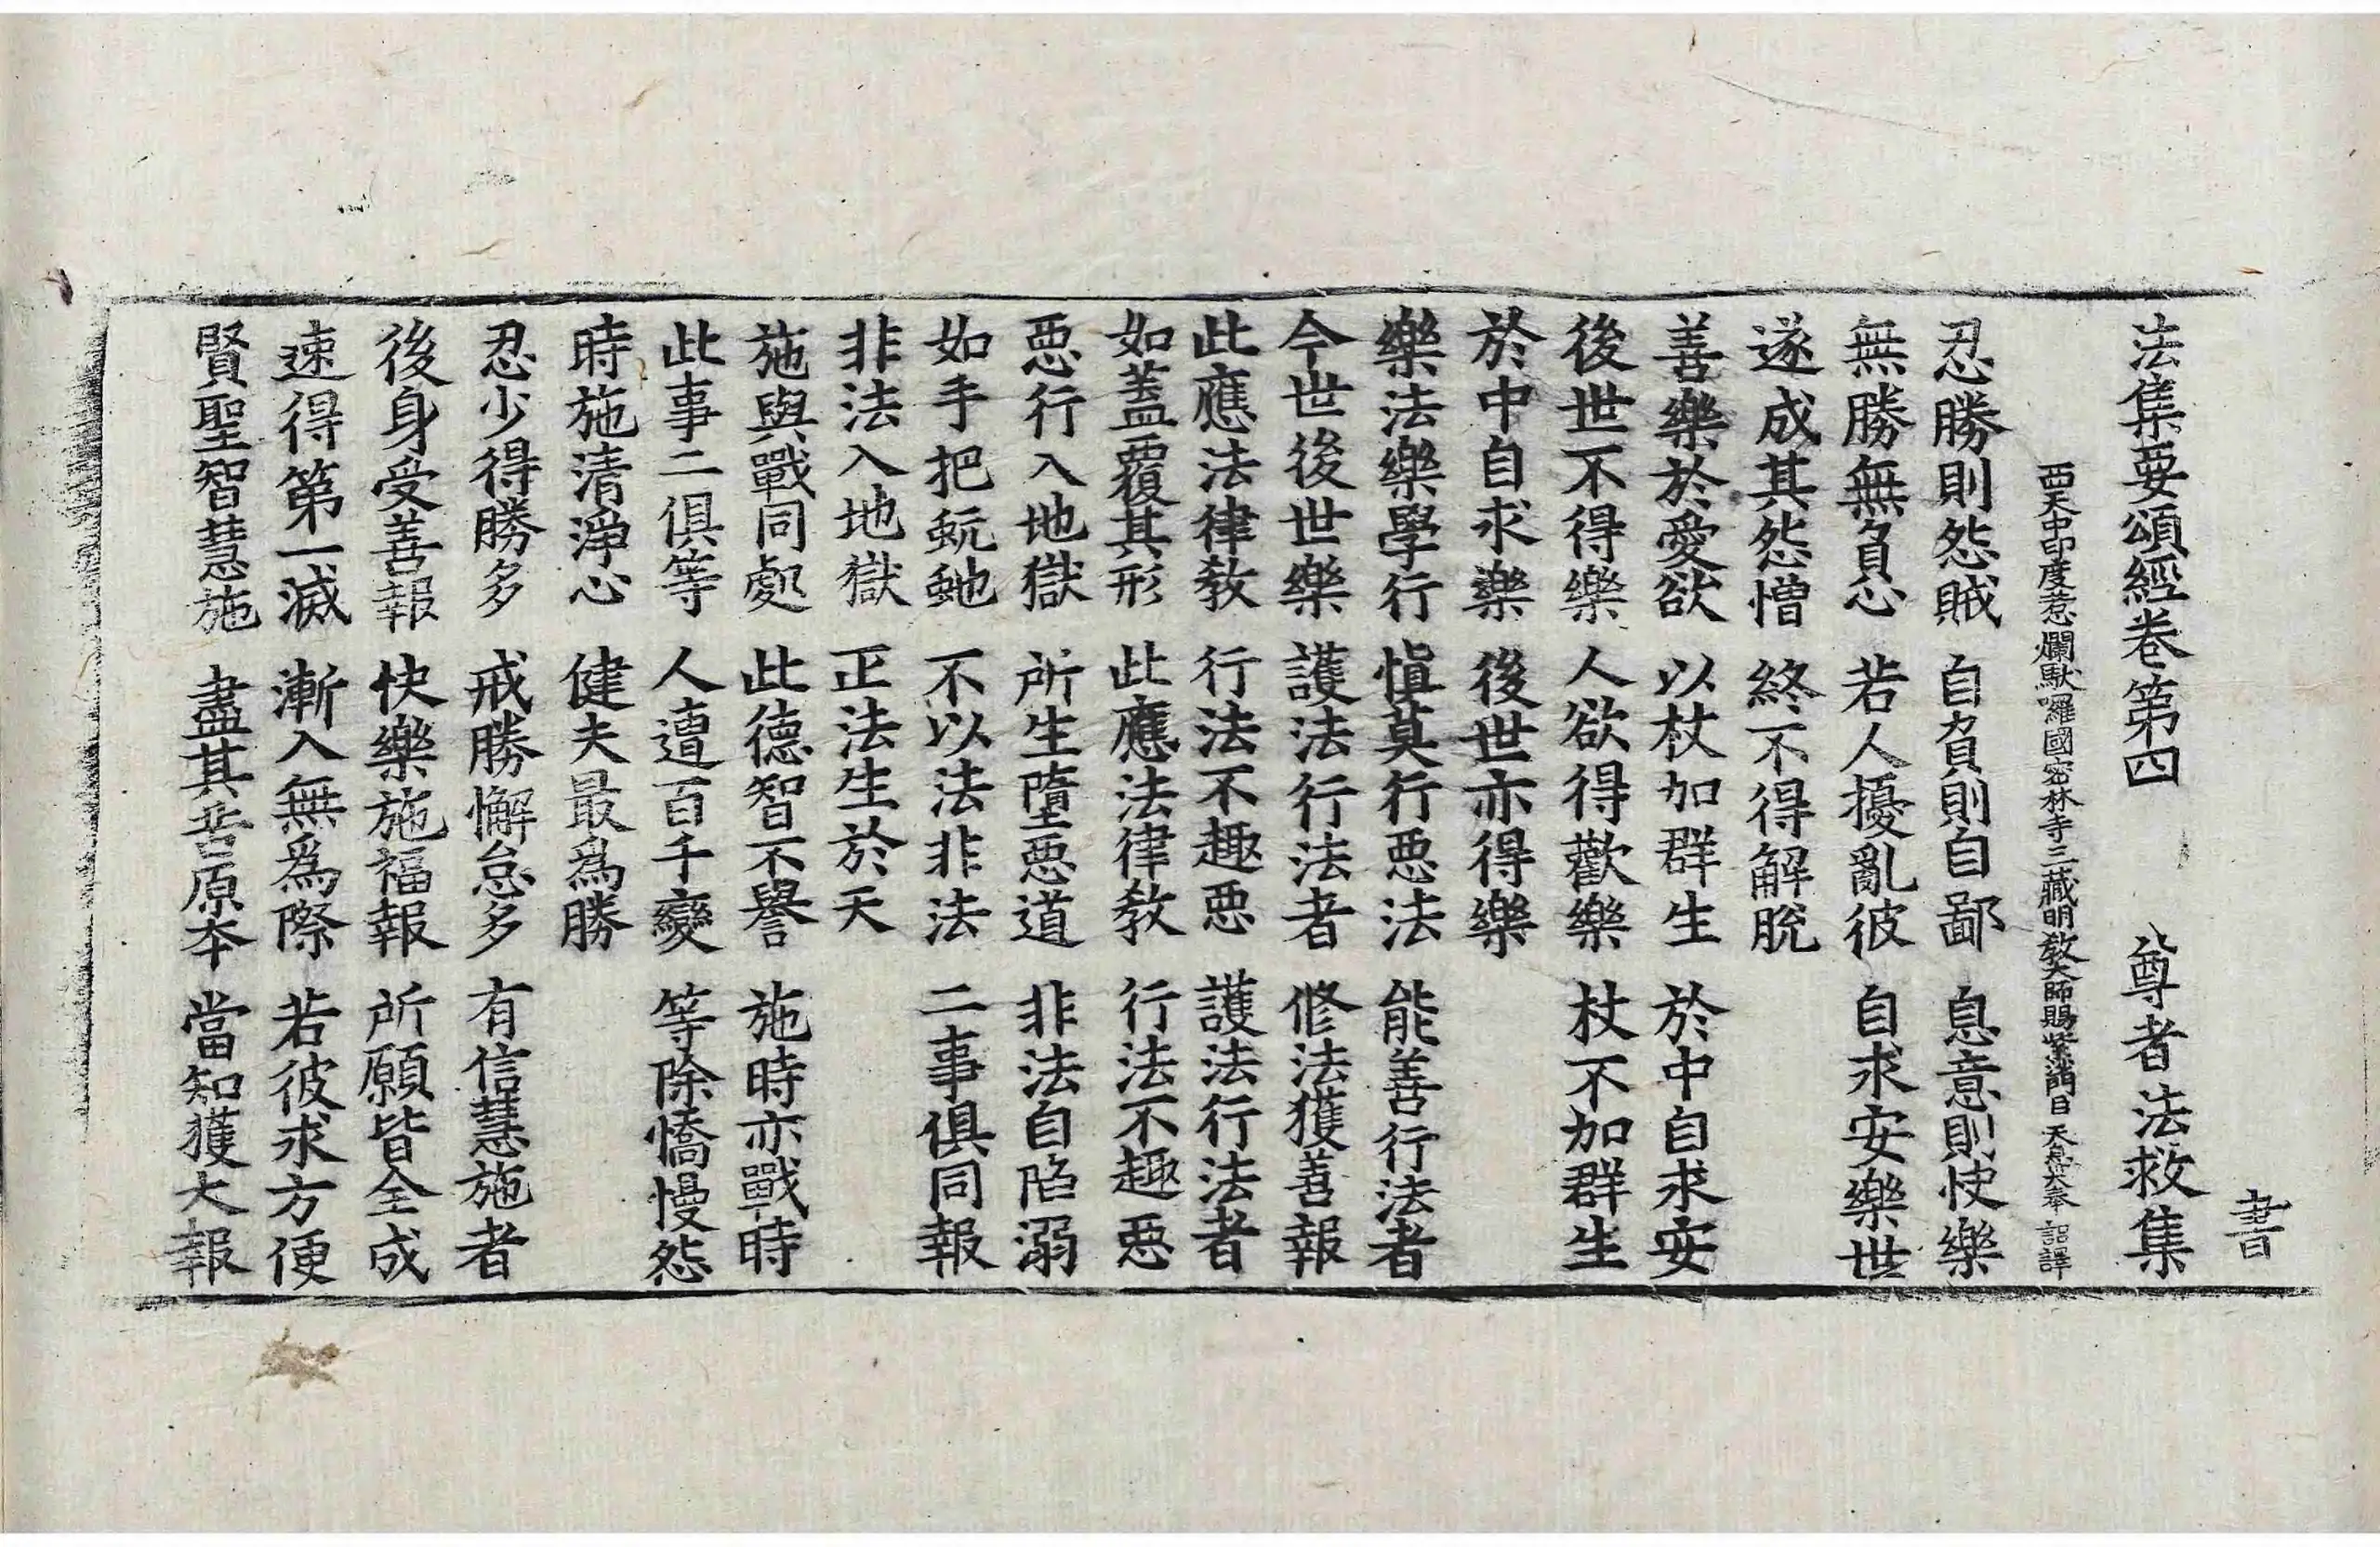 法集要頌經卷第四 尊者法救集 書
西天中印度惹爛馱囉國密林寺三藏明教大師賜紫沙門臣天息災奉 詔譯
忍勝則怨賊 自負則自鄙 息意則快樂
無勝無負心 若人擾亂彼 自求安樂世
遂成其怨憎 終不得解脫
善樂於愛欲 以杖加群生 於中自求安
後世不得樂 人欲得歡樂 杖不加群生
於中自求樂 後世亦得樂
樂法樂學行 慎莫行惡法 能善行法者
今世後世樂 護法行法者 修法獲善報
此應法律教 行法不趣惡 護法行法者
如蓋覆其形 此應法律教 行法不趣惡
惡行入地獄 所生墮惡道 非法自陷溺
如手把蚖虵 不以法非法 二事俱同報
非法入地獄 正法生於天
施與戰同處 此德智不譽 施時亦戰時
此事二俱等 人遭百千變 等除憍慢怨
時施清淨心 健夫最為勝
忍少得勝多 戒勝懈怠多 有信慧施者
後身受善報 快樂施福報 所願皆全成
速得第一滅 漸入無為際 若彼求方便
賢聖智慧施 盡其苦原本 當知獲大報